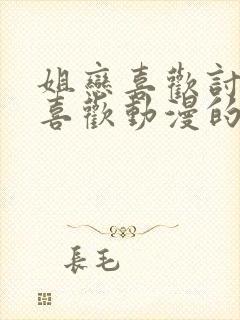 姐戀喜歡討
喜歡動漫的
長毛